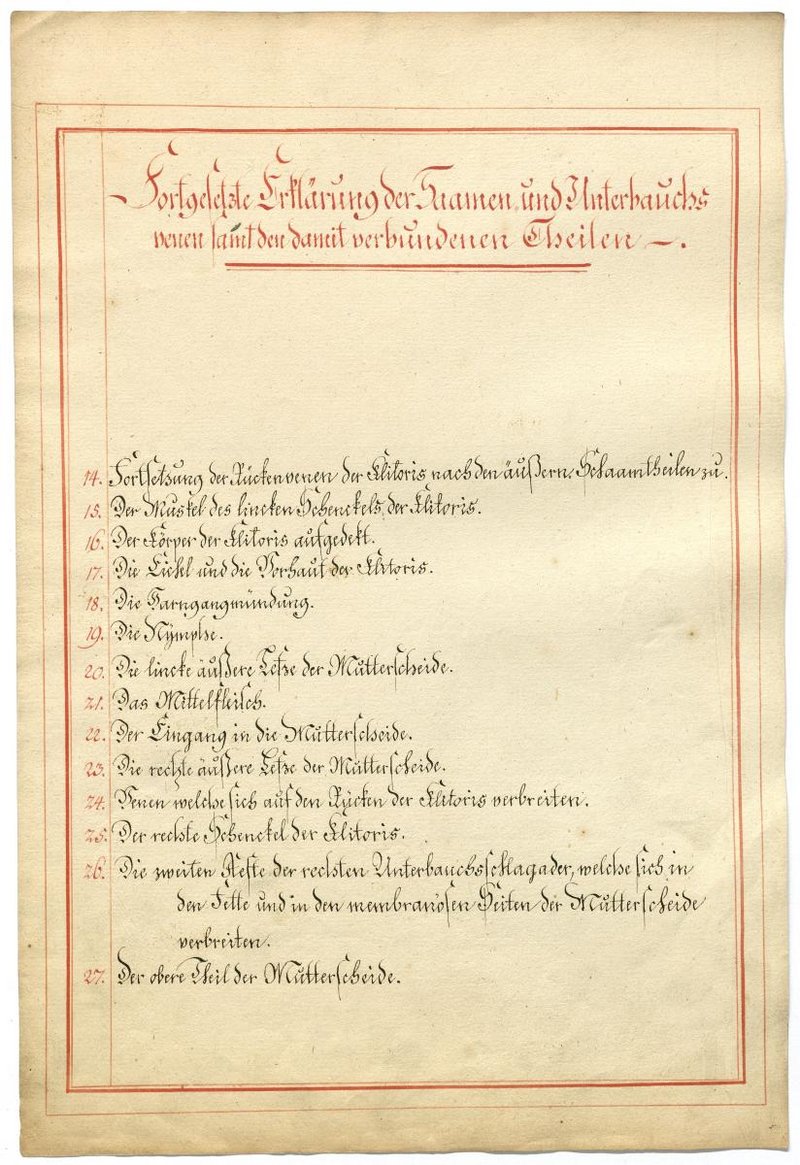 Fortgesetzte Erklärung der Saamen und Unterbauchs
venen samt den damit verbundenen Theilen —.
14. Fortsetzung der Rückenvenen der Klitoris nach den äußern Schaamtheilen zu.
15. Der Muskel des lincken Schenckels der Klitoris.
16. Der Körper der Klitoris aufgedekt.
17. Die Eichel und die Vorhaut der Klitoris.
18. Die Harngangmündung.
19. Die Nymphe.
20. Die lincke äußere Lefze der Mutterscheide.
21. Das Mittelfleisch.
22. Der Eingang in die Mutterscheide.
23. Die rechte äußere Lefze der Mutterscheide.
24. Venen welche sich auf den Rücken der Klitoris verbreiten.
25. Der rechte Schenckel der Klitoris.
26. Die zweiten Aeste der rechten Unterbauchsschlagader, welche sich in
den Fette und in den membranösen Seiten der Mutterscheide
verbreiten.
27. Der obere Theil der Mutterscheide.